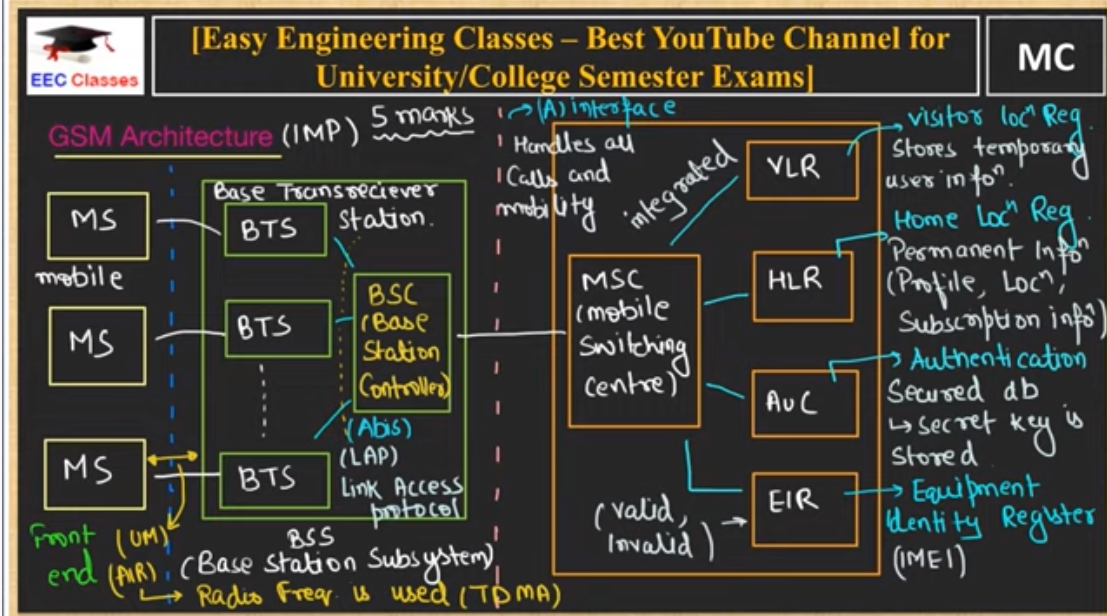 EEC Classes
[Easy Engineering Classes – Best YouTube Channel for
University/College Semester Exams]
MC
GSM Architecture (IMP) 5 marks
MS
mobile
MS
MS
Base Transreciever
Station.
BTS
BTS
BTS
BSC
(Base
Station
Controller)
(Abis)
(LAP)
Link Access
protocol
BSS
(Base Station Subsystem)
Front
end
(UM)
(AIR)
Radio Freq. is used (TDMA)
(A) interface
Handles all
Calls and
mobility
integrated
MSC
(mobile
Switching
centre)
VLR
HLR
AuC
EIR
(valid,
Invalid)
visitor locⁿ Reg.
Stores temporary
user infoⁿ.
Home Locⁿ Reg.
Permanent Infoⁿ
(Profile, Locⁿ,
Subscription infoⁿ)
Authentication
Secured db
↳ secret key is
Stored
Equipment
Identity Register
(IMEI)